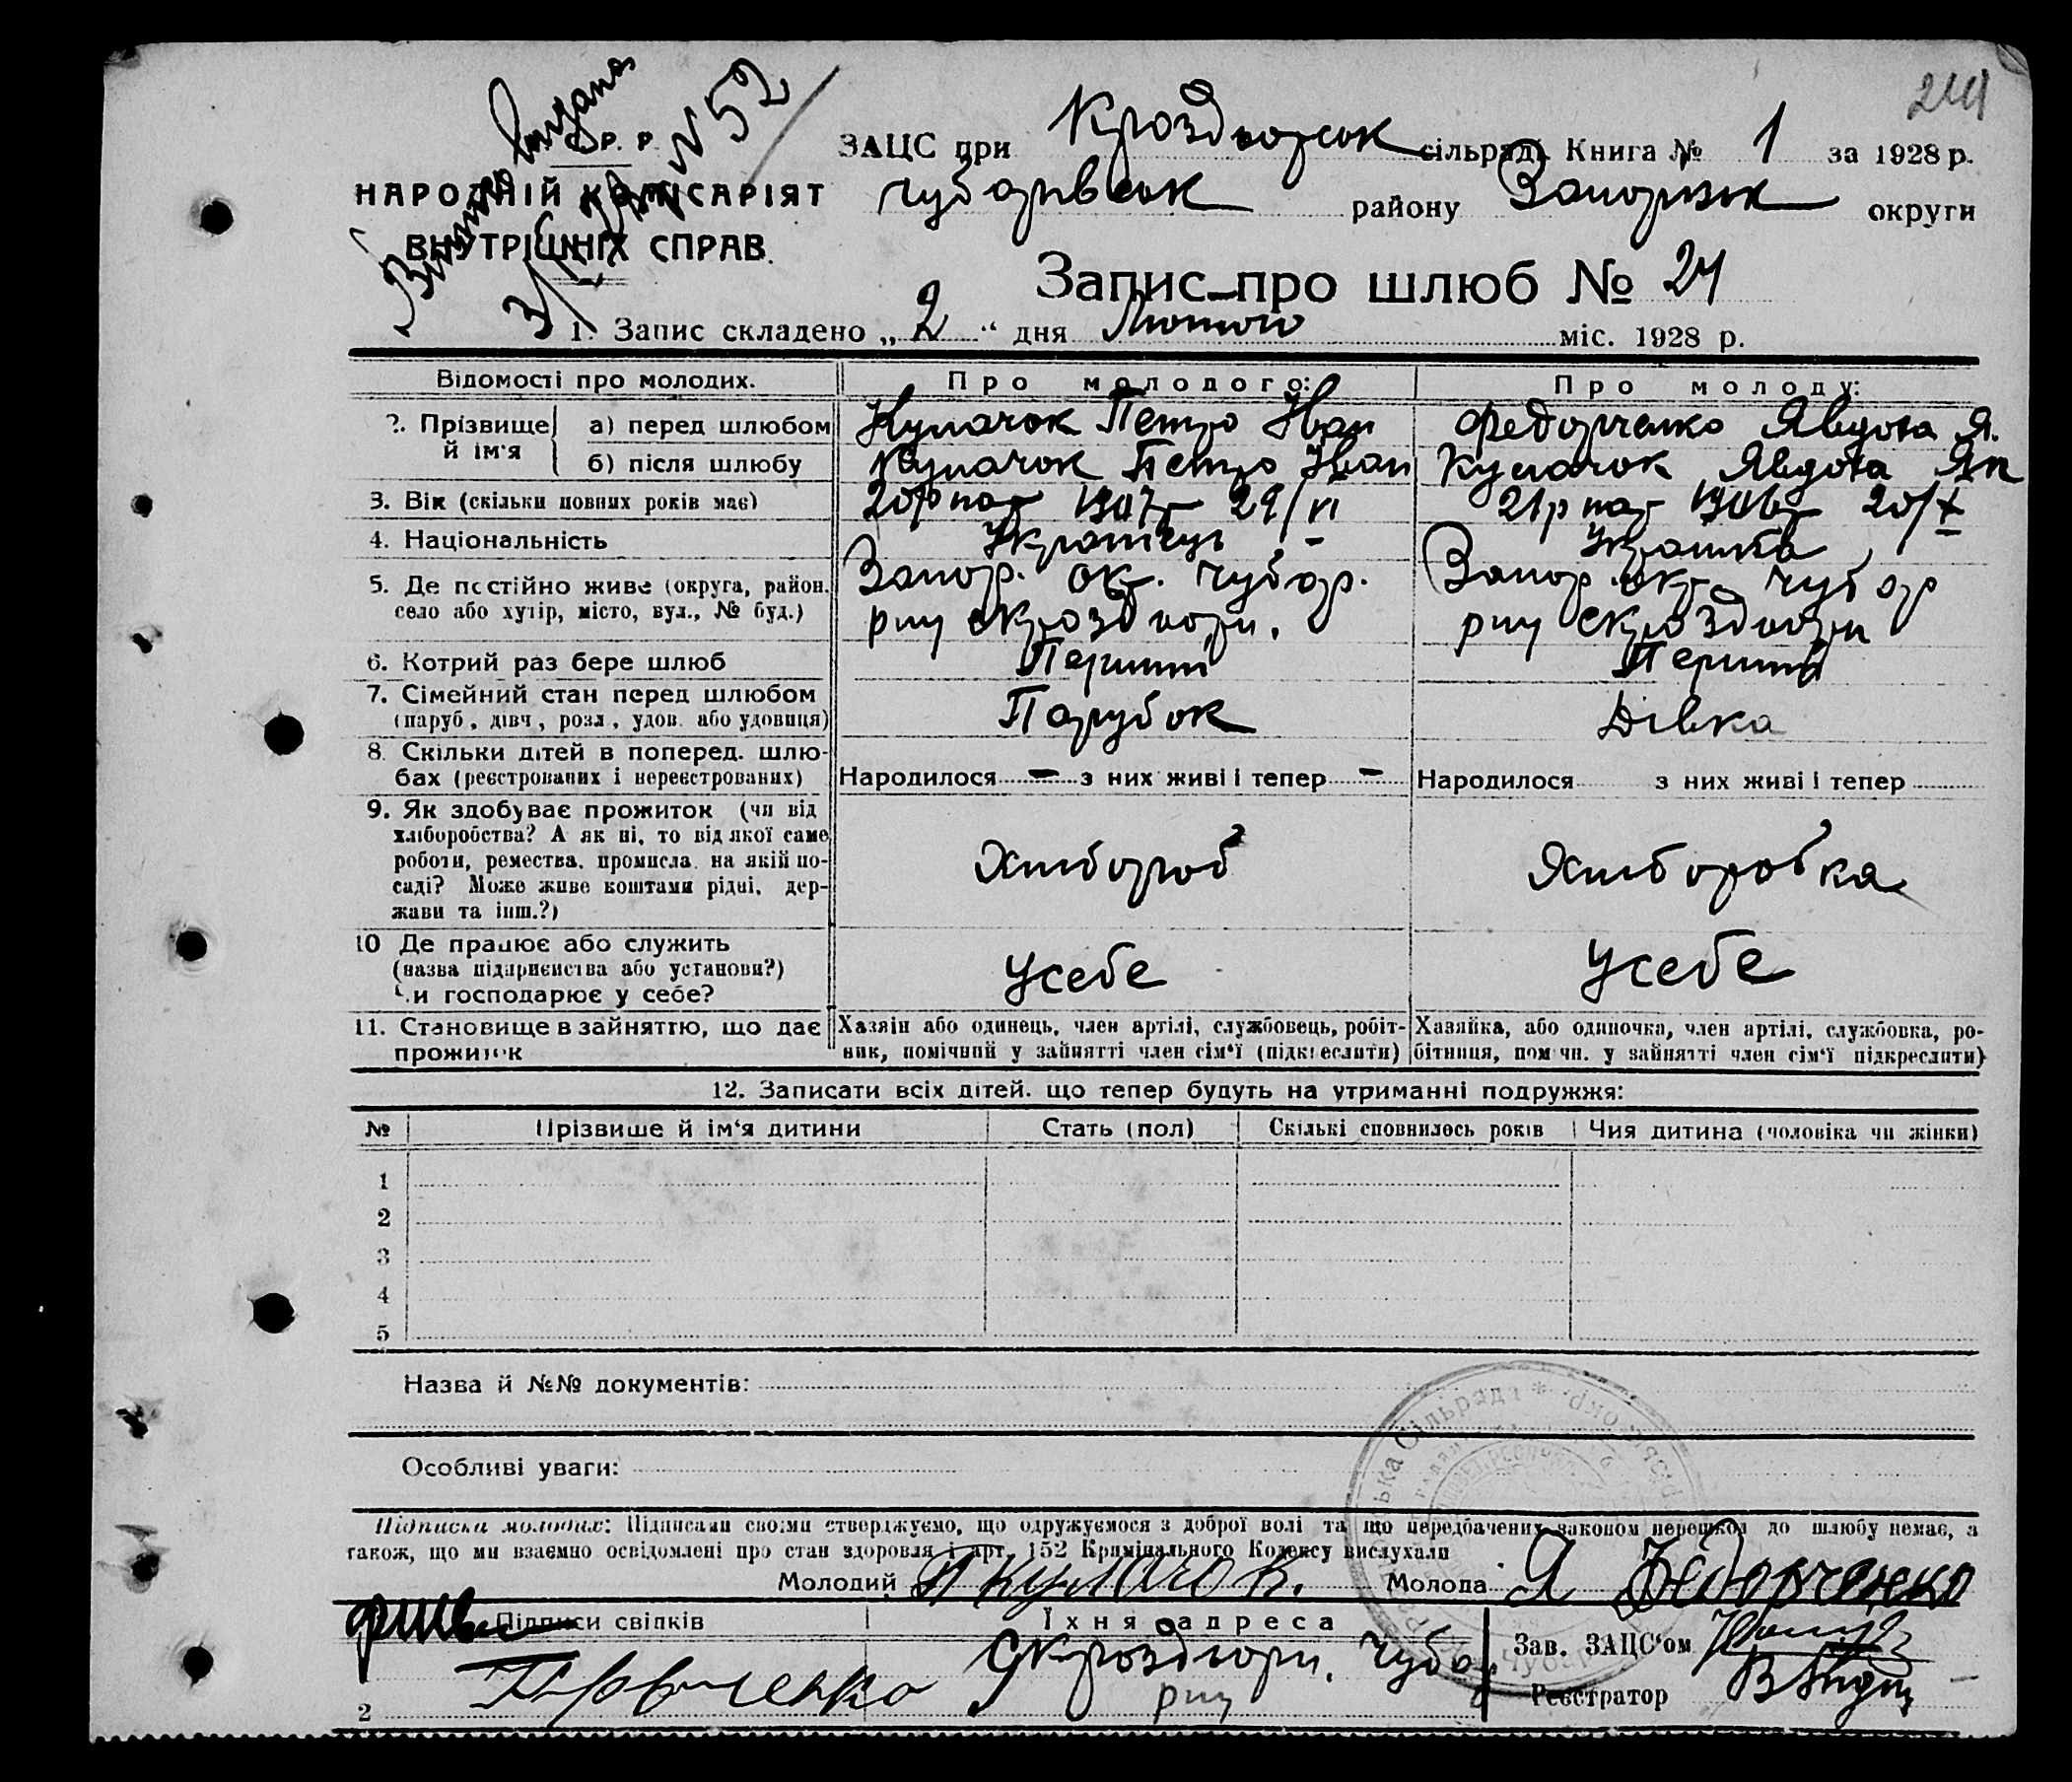 244
Р. Р.
№ 52
НАРОДНІЙ КОМІСАРІЯТ
ВНУТРІШНІХ СПРАВ.
ЗАЦС при Кроздворськ сільраді Книга № 1 за 1928 р.
Чубарівськ району Запоризьк округи
Запис про шлюб № 24
1. Запис складено „ 2 “ дня Лютого міс. 1928 р.
Відомості про молодих. Про молодого: Про молоду:
2. Прізвище й ім'я
а) перед шлюбом Кулачок Петро Іван Федорченко Явдоха Я.
б) після шлюбу Кулачок Петро Іван Кулачок Явдоха Як
3. Вік (скільки повних років має) 20 р нар 1907 р 29/VI 21 р нар 1906 р 20/X
4. Національність Українець Українка
5. Де постійно живе (округа, район, Запор. окр. Чубар. Запор. окр. Чубар
село або хутір, місто, вул., № буд.)
6. Котрий раз бере шлюб Перший Перший
7. Сімейний стан перед шлюбом Парубок Дівка
(паруб, дівч, розл, удов. або удовиця)
8. Скільки дітей в поперед. шлю-
бах (реєстрованих і нереєстрованих) Народилося – з них живі і тепер – Народилося з них живі і тепер
9. Як здобуває прожиток (чи від
хліборобства? А як ні, то від якої саме
роботи, ремества, промисла, на якій по- Хлібороб Хліборобка
саді? Може живе коштами рідні, дер-
жави та інш.?)
10 Де працює або служить
(назва підприємства або установи?) Усебе Усебе
Чи господарює у себе?
11. Становище в зайняттю, що дає Хазяїн або одинець, член артілі, службовець, робіт- Хазяйка, або одиночка, член артілі, службовка, ро-
прожиток ник, помічний у зайнятті член сім'ї (підкреслити) бітниця, помічн. у зайнятті член сім'ї підкреслити)
12. Записати всіх дітей, що тепер будуть на утриманні подружжя:
№ Прізвише й ім'я дитини Стать (пол) Скількі сповнилось років Чия дитина (чоловіка чи жінки)
1
2
3
4
5
Назва й №№ документів:
Особливі уваги:
Підписка молодих: Підписами своїми стверджуємо, що одружуємося з доброї волі та що передбачених законом перешкод до шлюбу немає, а
також, що ми взаємно освідомлені про стан здоровля і арт. 152 Кримінального Кодексу вислухали
Молодий П Кулачок. Молода Я Федорченко
Підписи свідків Їхня адреса Зав. ЗАЦС'ом
2 Реєстратор